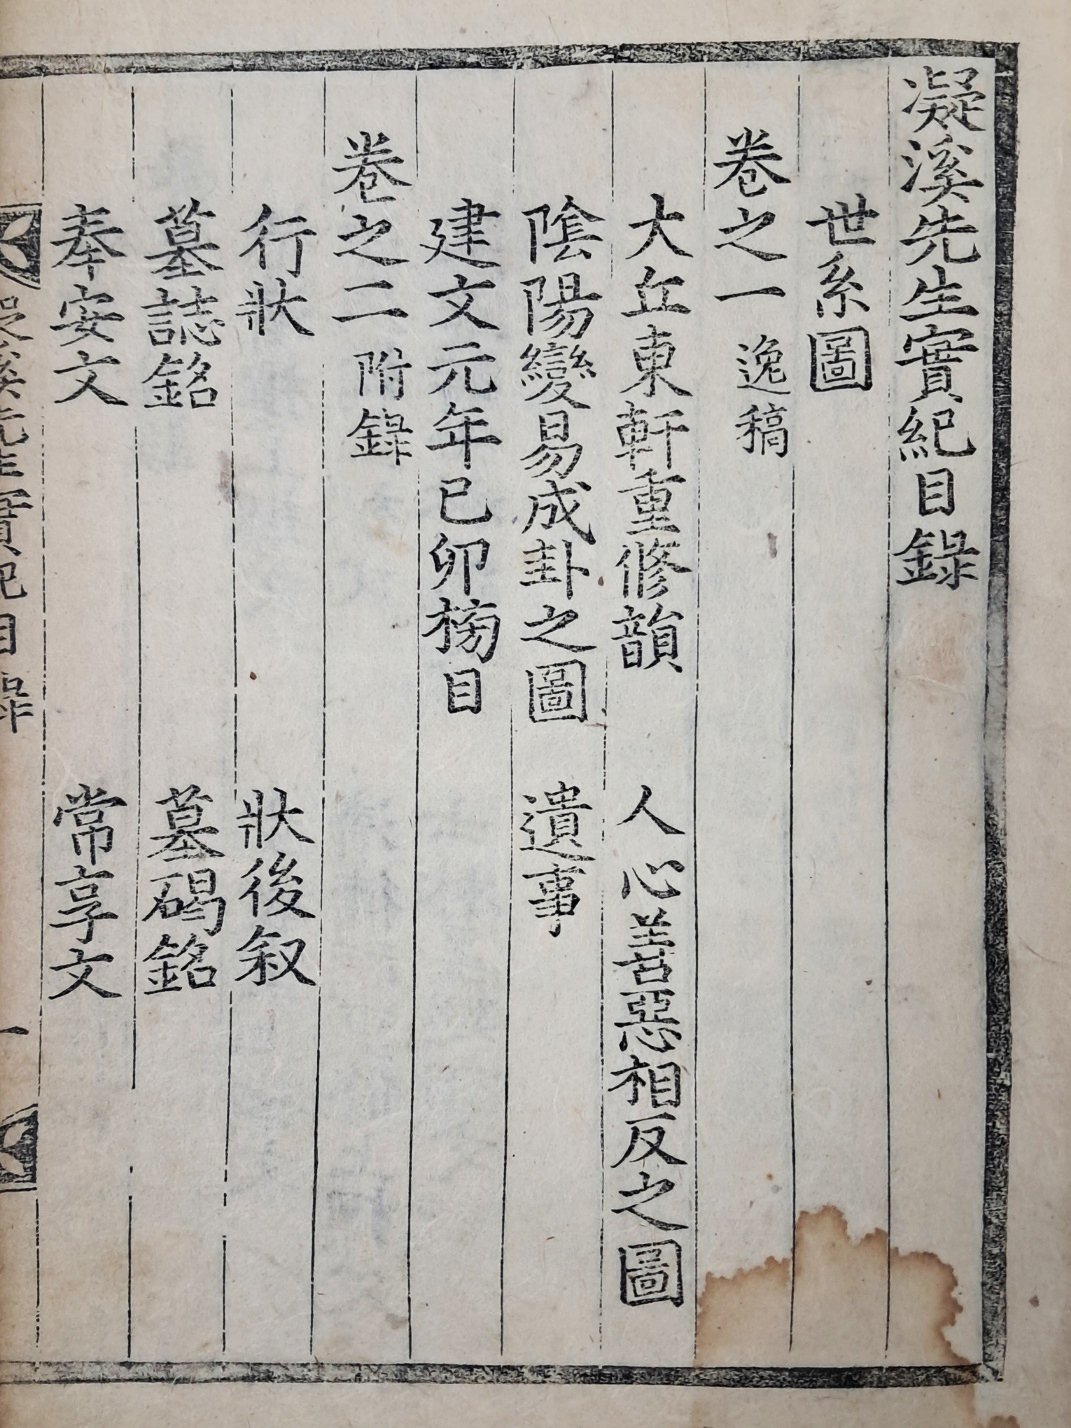 凝溪先生實紀目錄
世系圖
卷之一 逸稿
大丘東軒重修韻 人心善惡相反之圖
陰陽變易成卦之圖 遺事
建文元年己卯榜目
卷之二 附錄
行狀 狀後叙
墓誌銘 墓碣銘
奉安文 常享文
溪先生實紀目錄 一